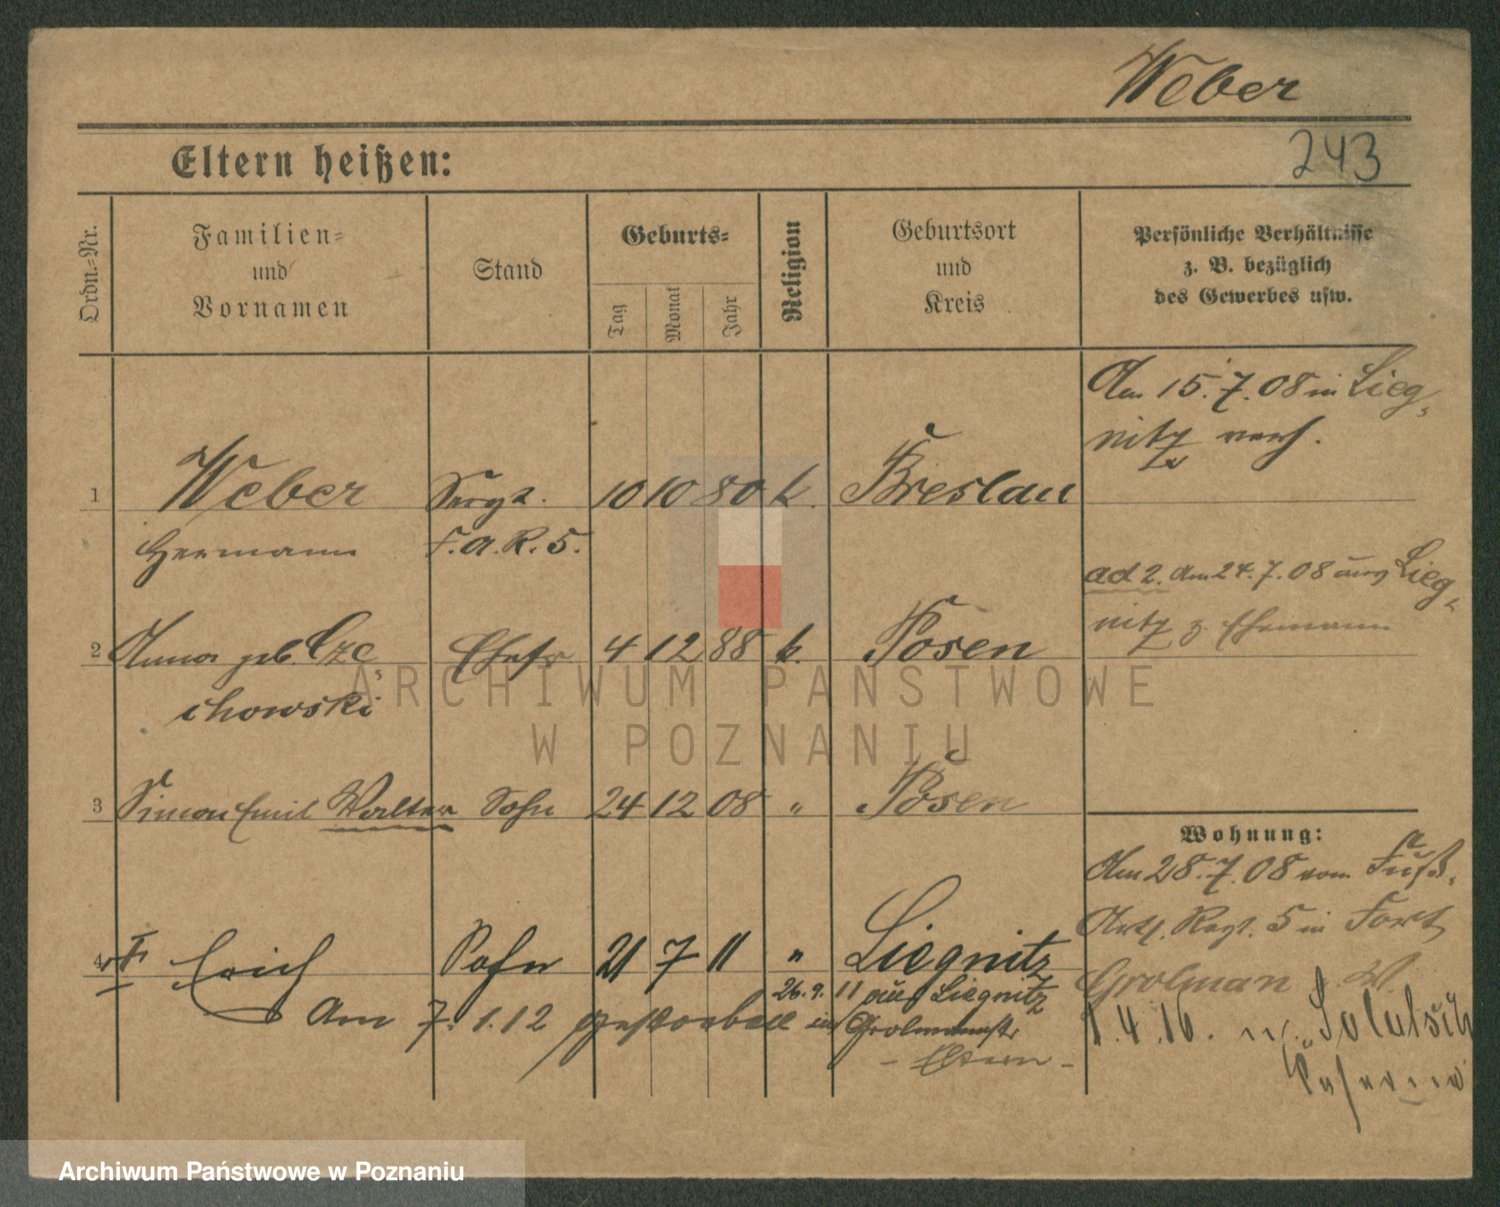 Weber
243
Eltern heißen:
Ordn.-Nr.
Familien- und Vornamen
Stand
Geburts-
Tag
Monat
Jahr
Religion
Geburtsort und Kreis
Persönliche Verhältnisse
z. B. bezüglich
des Gewerbes usw.
Am 15.7.08 in Lieg-
nitz verh.
1 Weber Sergt. 10 10 80 k. Breslau
Hermann F.A.R.5.
ad 2. Am 24.7.08 aus Lieg-
nitz z. Ehemann
2 Anna geb. Cze- Ehefr 4 12 88 k. Posen
chowski
3 Simon Emil Walter Sohn 24 12 08 " Posen
Wohnung:
Am 28.7.08 vom Fuß-
Art. Regt. 5 in Fort
Grolman W.
4 Erich Sohn 21 7 11 " Liegnitz
26.9.11 aus Liegnitz
Am 7.1.12 gestorben in Grolmannstr
- Eltern -
1.4.16.
ARCHIWUM PAŃSTWOWE
W POZNANIU
Archiwum Państwowe w Poznaniu